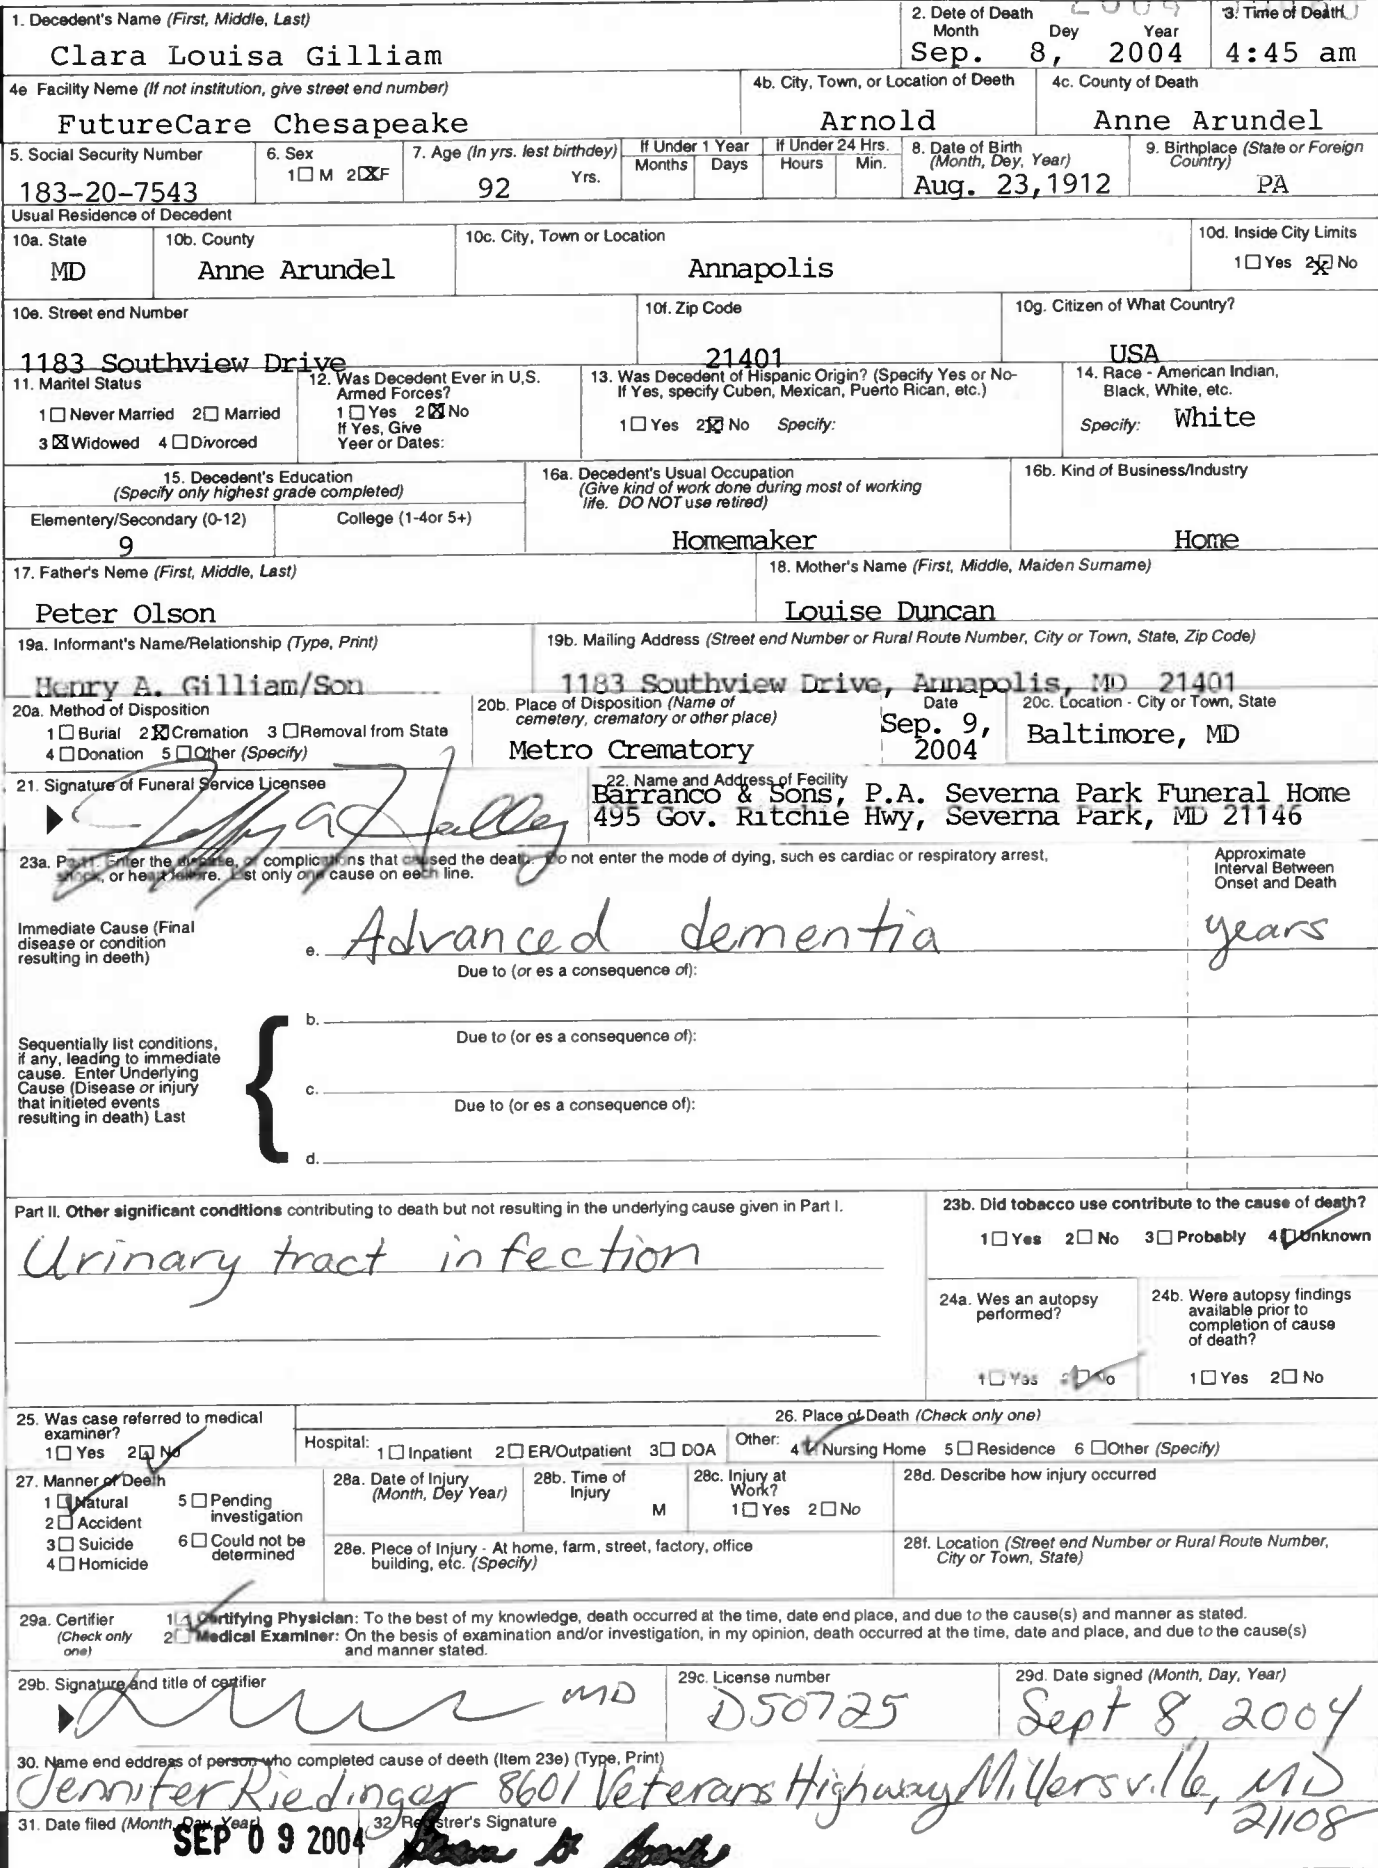 1. Decedent's Name (First, Middle, Last)
Clara Louisa Gilliam
2. Dete of Death
Month Dey Year
Sep. 8, 2004
3. Time of Death
4:45 am
4e Facility Neme (If not institution, give street end number)
FutureCare Chesapeake
4b. City, Town, or Location of Deeth
Arnold
4c. County of Death
Anne Arundel
5. Social Security Number
183-20-7543
6. Sex
1☐ M 2☒F
7. Age (In yrs. lest birthdey)
92 Yrs.
If Under 1 Year
Months Days
If Under 24 Hrs.
Hours Min.
8. Date of Birth
(Month, Dey, Year)
Aug. 23,1912
9. Birthplace (State or Foreign
Country)
PA
Usual Residence of Decedent
10a. State
MD
10b. County
Anne Arundel
10c. City, Town or Location
Annapolis
10d. Inside City Limits
1☐Yes 2☒No
10e. Street end Number
1183 Southview Drive
10f. Zip Code
21401
10g. Citizen of What Country?
USA
11. Maritel Status
1☐Never Married 2☐ Married
3☒Widowed 4☐Divorced
12. Was Decedent Ever in U,S.
Armed Forces?
1☐Yes 2☒No
If Yes, Give
Yeer or Dates:
13. Was Decedent of Hispanic Origin? (Specify Yes or No-
If Yes, specify Cuben, Mexican, Puerto Rican, etc.)
1☐Yes 2☒No Specify:
14. Race - American Indian,
Black, White, etc.
Specify: White
15. Decedent's Education
(Specify only highest grade completed)
Elementery/Secondary (0-12)
9
College (1-4or 5+)
16a. Decedent's Usual Occupation
(Give kind of work done during most of working
life. DO NOT use retired)
Homemaker
16b. Kind of Business/Industry
Home
17. Father's Neme (First, Middle, Last)
Peter Olson
18. Mother's Name (First, Middle, Maiden Surname)
Louise Duncan
19a. Informant's Name/Relationship (Type, Print)
Henry A. Gilliam/Son
19b. Mailing Address (Street end Number or Rural Route Number, City or Town, State, Zip Code)
1183 Southview Drive, Annapolis, MD 21401
20a. Method of Disposition
1☐Burial 2☒Cremation 3☐Removal from State
4☐Donation 5☐Other (Specify)
20b. Place of Disposition (Name of
cemetery, crematory or other place)
Metro Crematory
Date
Sep. 9,
2004
20c. Location - City or Town, State
Baltimore, MD
21. Signature of Funeral Service Licensee
22. Name and Address of Fecility
Barranco & Sons, P.A. Severna Park Funeral Home
495 Gov. Ritchie Hwy, Severna Park, MD 21146
23a. Part I. Enter the disease, or complications that caused the death. Do not enter the mode of dying, such es cardiac or respiratory arrest,
shock, or heart failure. List only one cause on eech line.
Approximate
Interval Between
Onset and Death
Immediate Cause (Final
disease or condition
resulting in death)
e. Advanced dementia
years
Due to (or es a consequence of):
b.
Due to (or es a consequence of):
Sequentially list conditions,
if any, leading to immediate
cause. Enter Underlying
Cause (Disease or injury
that initieted events
resulting in death) Last
c.
Due to (or es a consequence of):
d.
Part II. Other significant conditions contributing to death but not resulting in the underlying cause given in Part I.
Urinary tract infection
23b. Did tobacco use contribute to the cause of death?
1☐Yes 2☐No 3☐Probably 4☑Unknown
24a. Wes an autopsy
performed?
1☐Yes 2☑No
24b. Were autopsy findings
available prior to
completion of cause
of death?
1☐Yes 2☐No
25. Was case referred to medical
examiner?
1☐Yes 2☑No
26. Place of Death (Check only one)
Hospital: 1☐Inpatient 2☐ER/Outpatient 3☐DOA Other: 4☑Nursing Home 5☐Residence 6☐Other (Specify)
27. Manner of Deeth
1☑Natural
2☐Accident
3☐Suicide
4☐Homicide
5☐Pending
investigation
6☐Could not be
determined
28a. Date of Injury
(Month, Dey Year)
28b. Time of
Injury
M
28c. Injury at
Work?
1☐Yes 2☐No
28d. Describe how injury occurred
28e. Plece of Injury - At home, farm, street, factory, office
building, etc. (Specify)
28f. Location (Street end Number or Rural Route Number,
City or Town, State)
29a. Certifier
(Check only
one)
1☑Certifying Physician: To the best of my knowledge, death occurred at the time, date end place, and due to the cause(s) and manner as stated.
2☐Medical Examiner: On the besis of examination and/or investigation, in my opinion, death occurred at the time, date and place, and due to the cause(s)
and manner stated.
29b. Signature and title of certifier
MD
29c. License number
D50725
29d. Date signed (Month, Day, Year)
Sept 8, 2004
30. Name end eddress of person who completed cause of deeth (Item 23e) (Type, Print)
Jennifer Riedinger 8601 Veterans Highway Millersville, MD
21108
31. Date filed (Month, Day, Year)
SEP 09 2004
32. Registrer's Signature